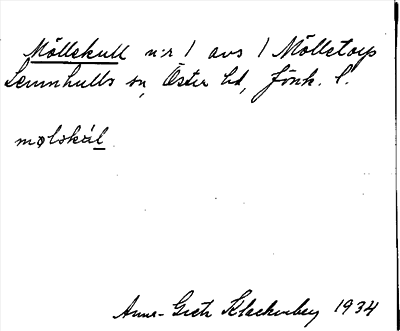 Möllekull n:r 1 avs 1 Mölletorp
Lemnhults sn, Östra hd, Jönk. l.
molskál
Anna-Greta Klackenberg 1934